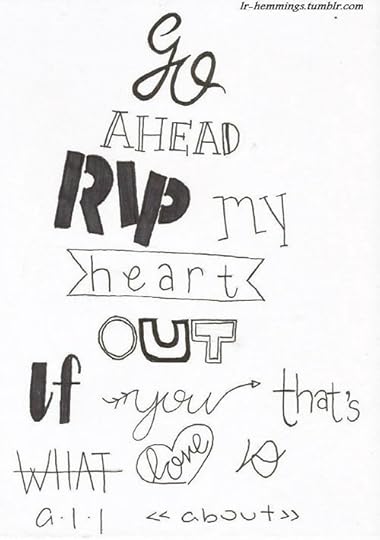 lr-hemmings.tumblr.com
go
AHEAD
RIP my
heart
OUT
If you that's
WHAT love is
a.l.l <<about>>